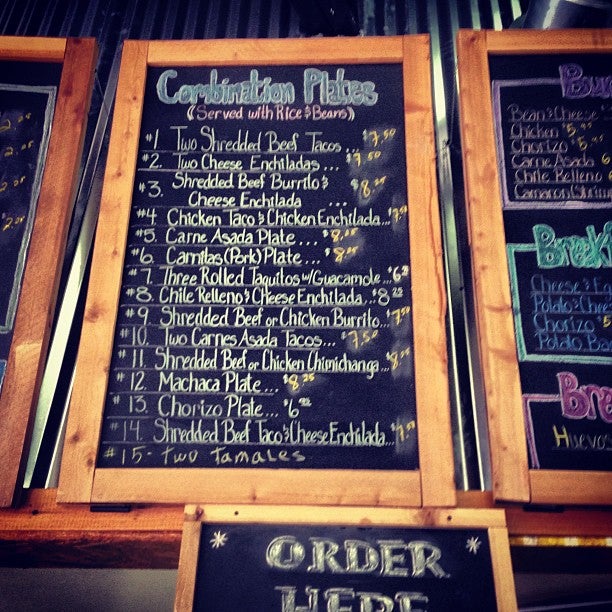 Combination Plates
(Served with Rice & Beans)
#1 Two Shredded Beef Tacos... $7.50
#2. Two Cheese Enchiladas... $7.50
#3. Shredded Beef Burrito &
Cheese Enchilada ...
#4 Chicken Taco & Chicken Enchilada...
#5. Carne Asada Plate...
#6. Carnitas (Pork) Plate...
#7. Three Rolled Taquitos w/Guacamole...
#8. Chile Relleno & Cheese Enchilada... $8 25
#9. Shredded Beef or Chicken Burrito...
#10. Two Carnes Asada Tacos... $7.50
#11. Shredded Beef or Chicken Chimichanga...
#12. Machaca Plate... $8.25
#13. Chorizo Plate...
#14. Shredded Beef Taco & Cheese Enchilada...
#15- Two Tamales
ORDER
HERE
Bean & Cheese
Chicken
Chorizo
Carne Asada
Chile Relleno
Camaron
Breakf
Cheese &
Potato & Chee
Chorizo
Potato, Ba
Bre
Huevos